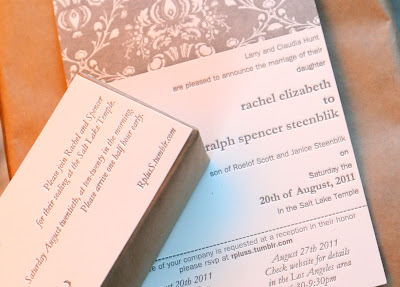 Larry and Claudia Hunt
are pleased to announce the marriage of their
daughter
rachel elizabeth
to
ralph spencer steenblik
son of Roelof Scott and Janice Steenblik
on
Saturday the
20th of August, 2011
In the Salt Lake Temple
of your company is requested at a reception in their honor
please rsvp at rpluss.tumblr.com
20th 2011
August 27th 2011
Check website for details
in the Los Angeles area
-9:30pm
Please join Rachel and Spencer
for their sealing at the Salt Lake Temple,
Saturday August twentieth, at ten-twenty in the morning.
Please arrive one half hour early.
RpluS.tumblr.com